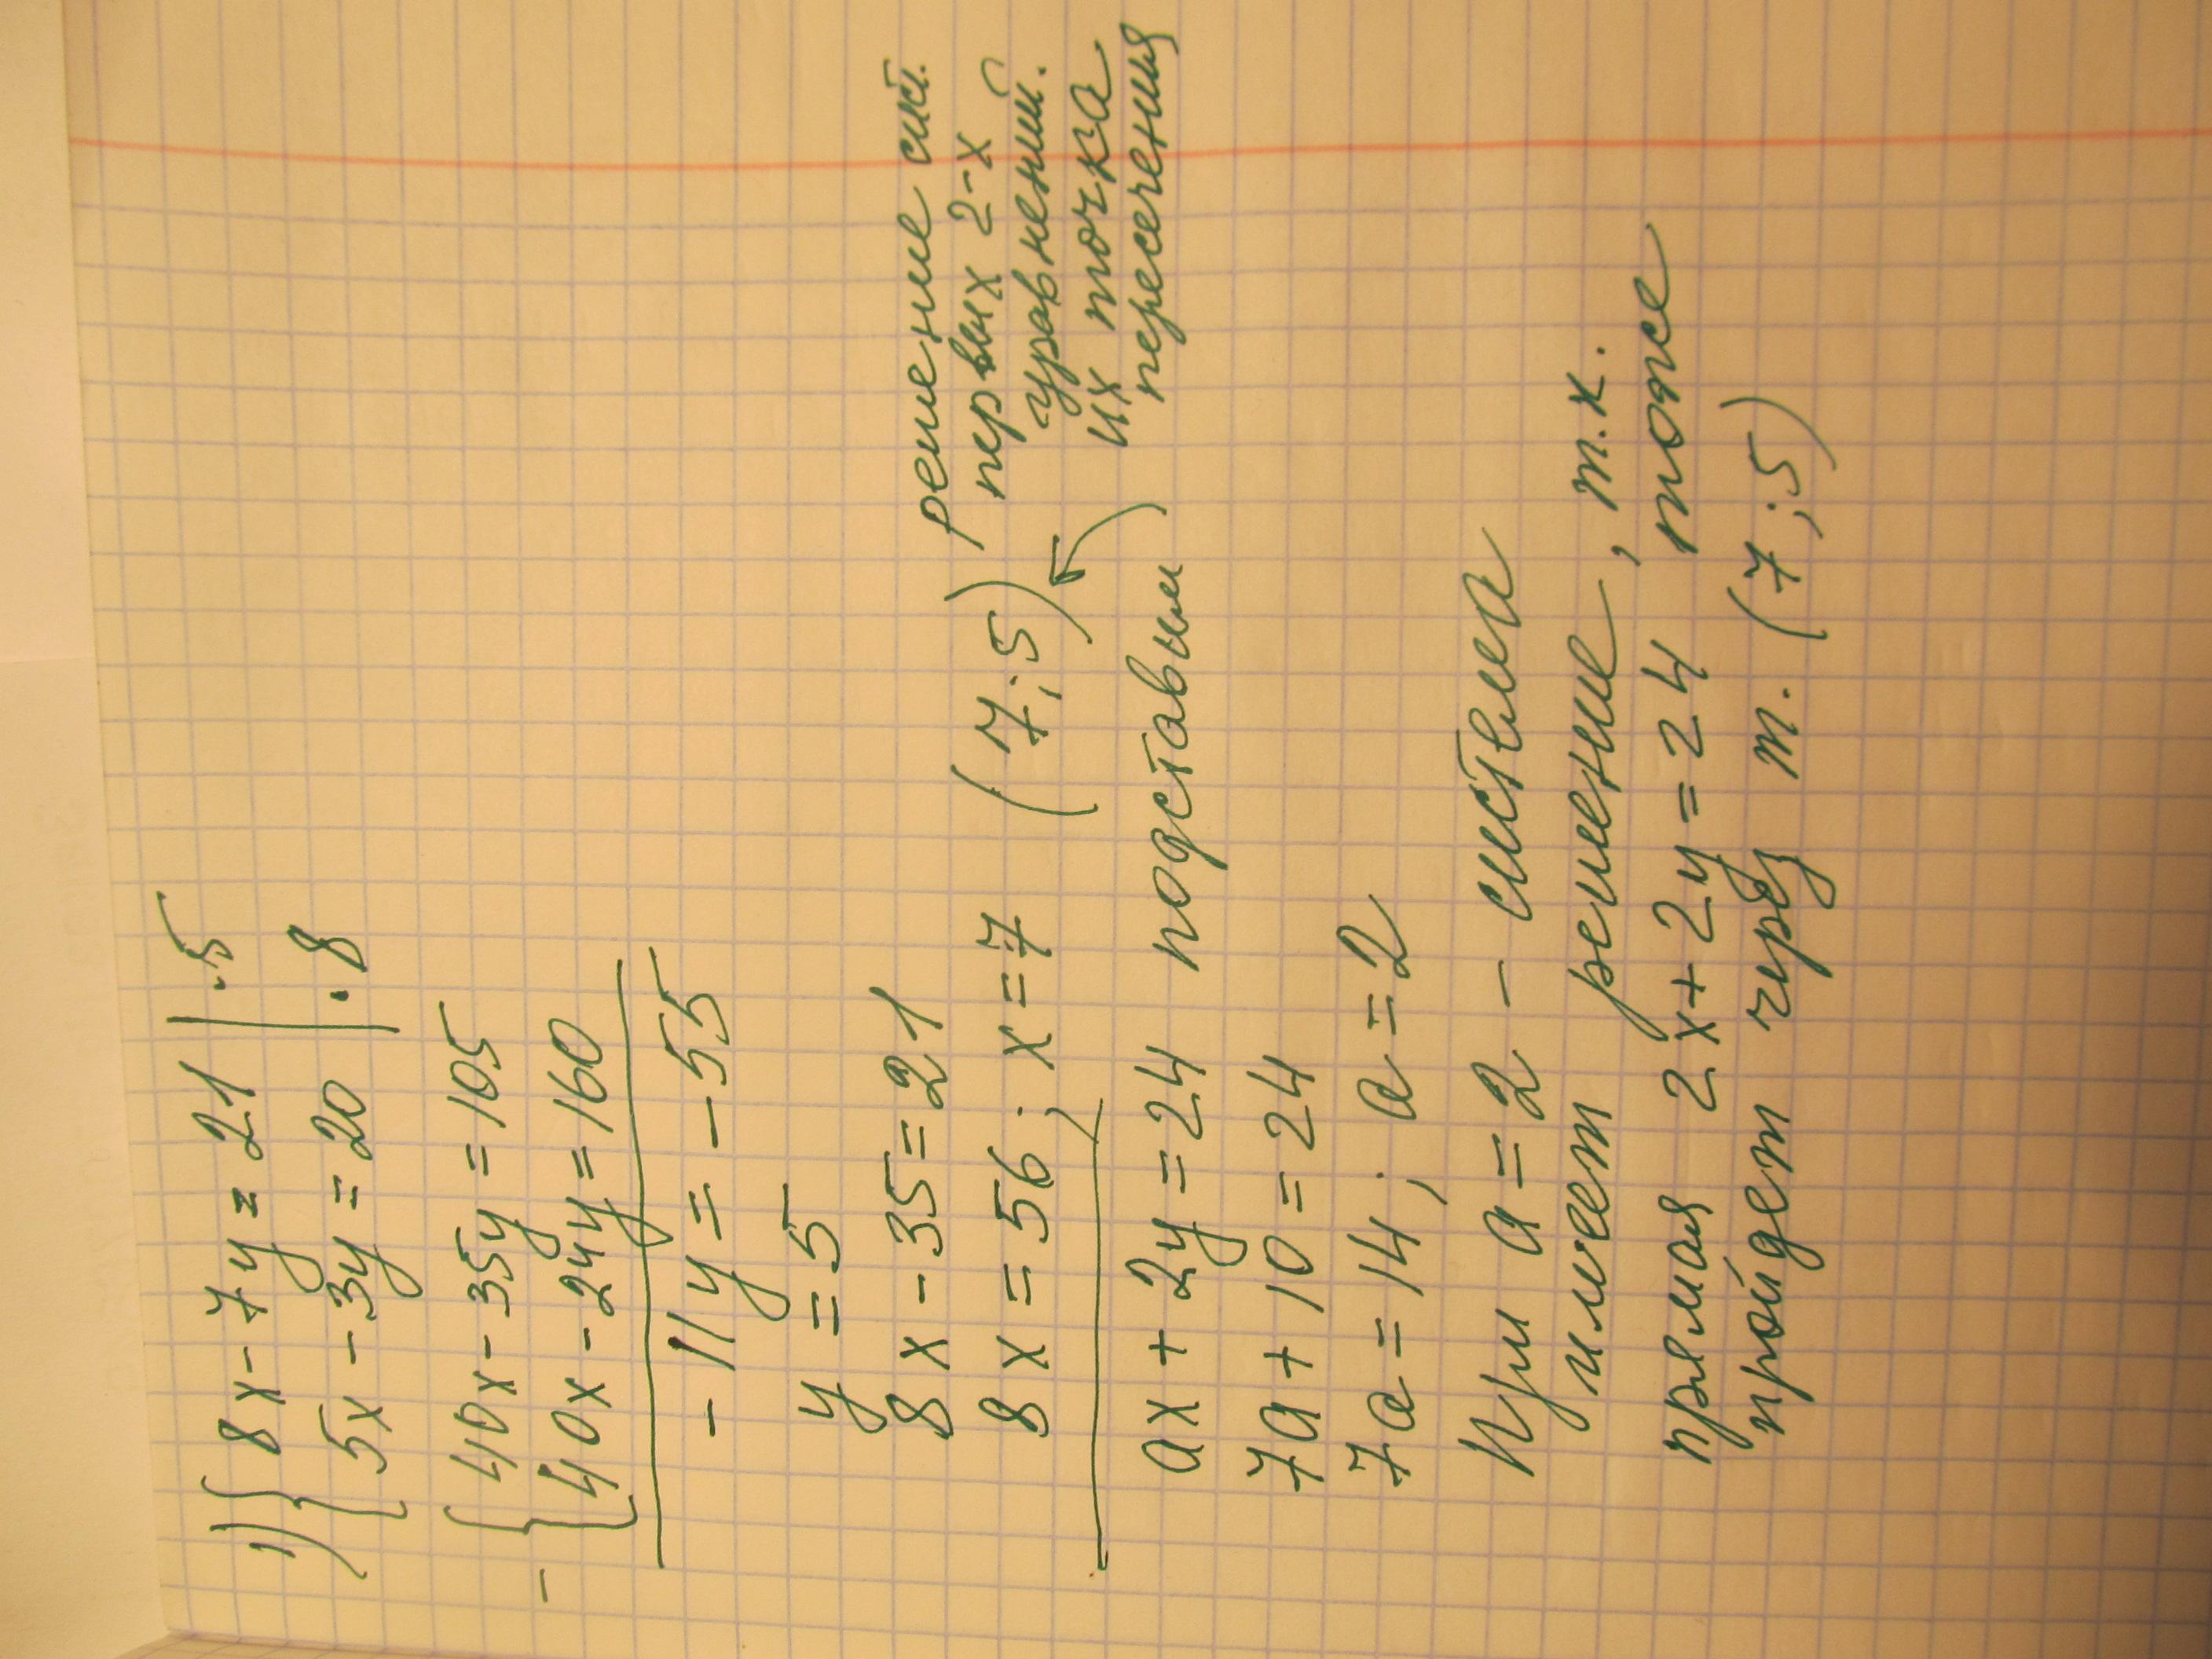 1) { 8x - 7y = 21 | · 5
5x - 3y = 20 | · 8
- { 40x - 35y = 105
40x - 24y = 160
- 11y = - 55
y = 5
8x - 35 = 21
8x = 56 ; x = 7 (7 ; 5)
решение сист.
первых 2-х
уравнений.
их точка
пересечения
ax + 2y = 24 подставим
7a + 10 = 24
7a = 14 ; a = 2
При a = 2 - система
имеет решение, т.к.
прямая 2x + 2y = 24 тоже
пройдет через т. (7 ; 5)